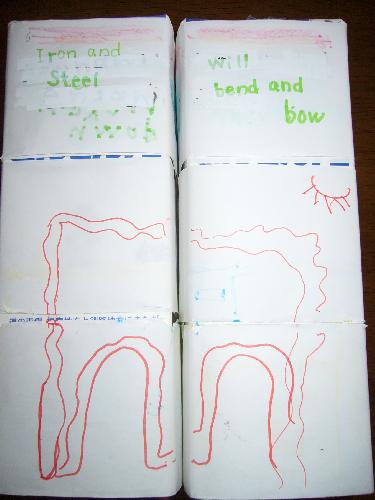 Iron and
Steel
will
bend and
bow